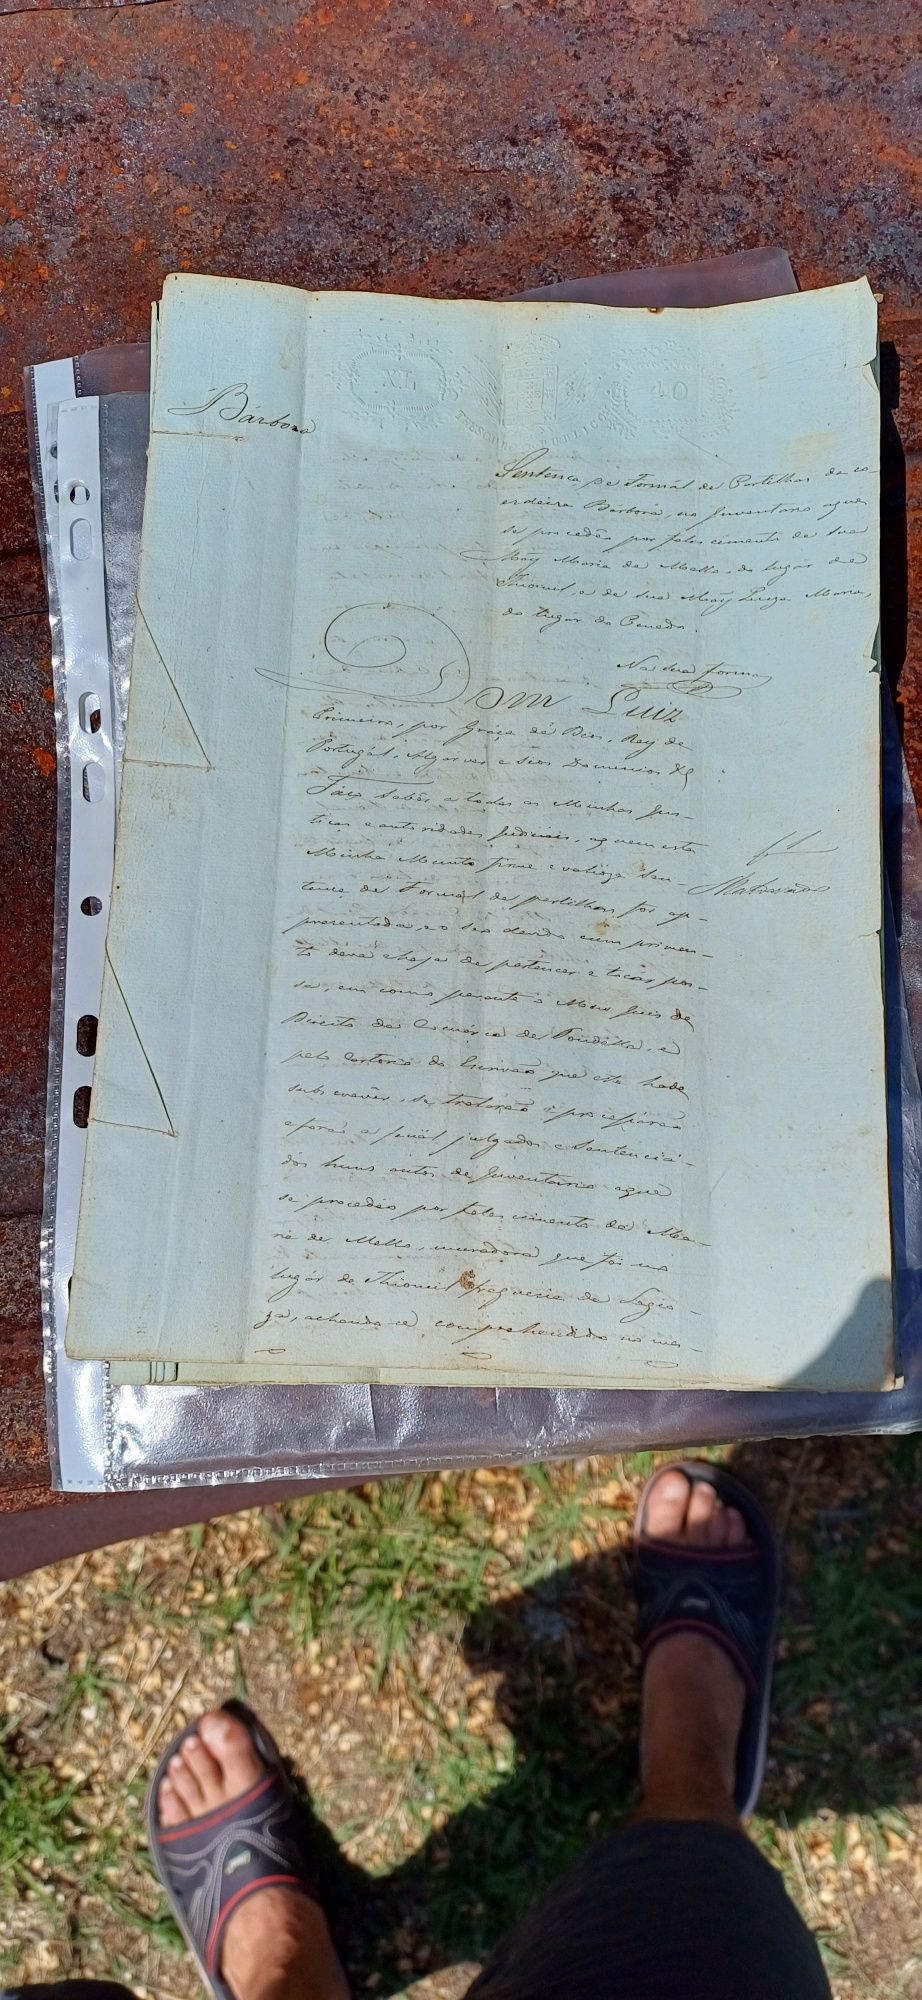 XL
40
THESOURO PUBLICO
Bárbora
Sentença de Formál de Partilhas da co-
erdeira Bárbora, no Inventario aque
se procedêo por falescimento de sua
Mãy Maria de Mello, do lugár de
e de sua Mãy Luiza Maria,
do lugar do Penedo.
Na sua forma
Dom Luiz
Primeiro, por Graça de Deos, Rey de
Portugál, Algarves e seos Dominios &
Faço sabêr a todas as Minhas Jus-
tiças e autoridades Judiciais, aquem esta
Minha Munto firme e valioza Sen-
tença de Formál de partilhas for ap-
prezentada, e o seo devido cumprimen-
to deva e haja de pertencer e tocár pos-
sa, em como perante o Meu Juis de
Direito da Comárca de Tondélla, e
pelo Cartorio do Escrivão que esta hade
subscrevêr, se tratarão e proceçárão
eforão a finál julgados e Sentenciá-
dos huns autos de Inventario aque
se procedêo por falescimento da Ma-
ria de Mello, muradora que foi no
lugár de freguezia de
achando-se comprehendido no mes-